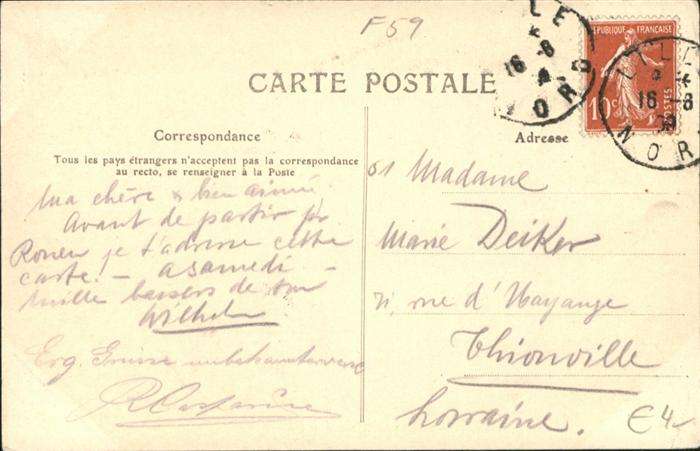 F59
LILLE
16-8
NORD
REPUBLIQUE FRANÇAISE
10c
POSTES
LILLE
16-8
NORD
CARTE POSTALE
Correspondance
Tous les pays étrangers n'acceptent pas la correspondance
au recto, se renseigner à la Poste
Adresse
Ma chère & bien aimée
Avant de partir pr
Rouen je t'adresse cette
carte! - a samedi -
Mille baisers de ton
Wilhelm
Erg. Grüsse unbekannterweise
Madame
Marie Deiker
rue d'Hayange
Thionville
Lorraine.
€4-